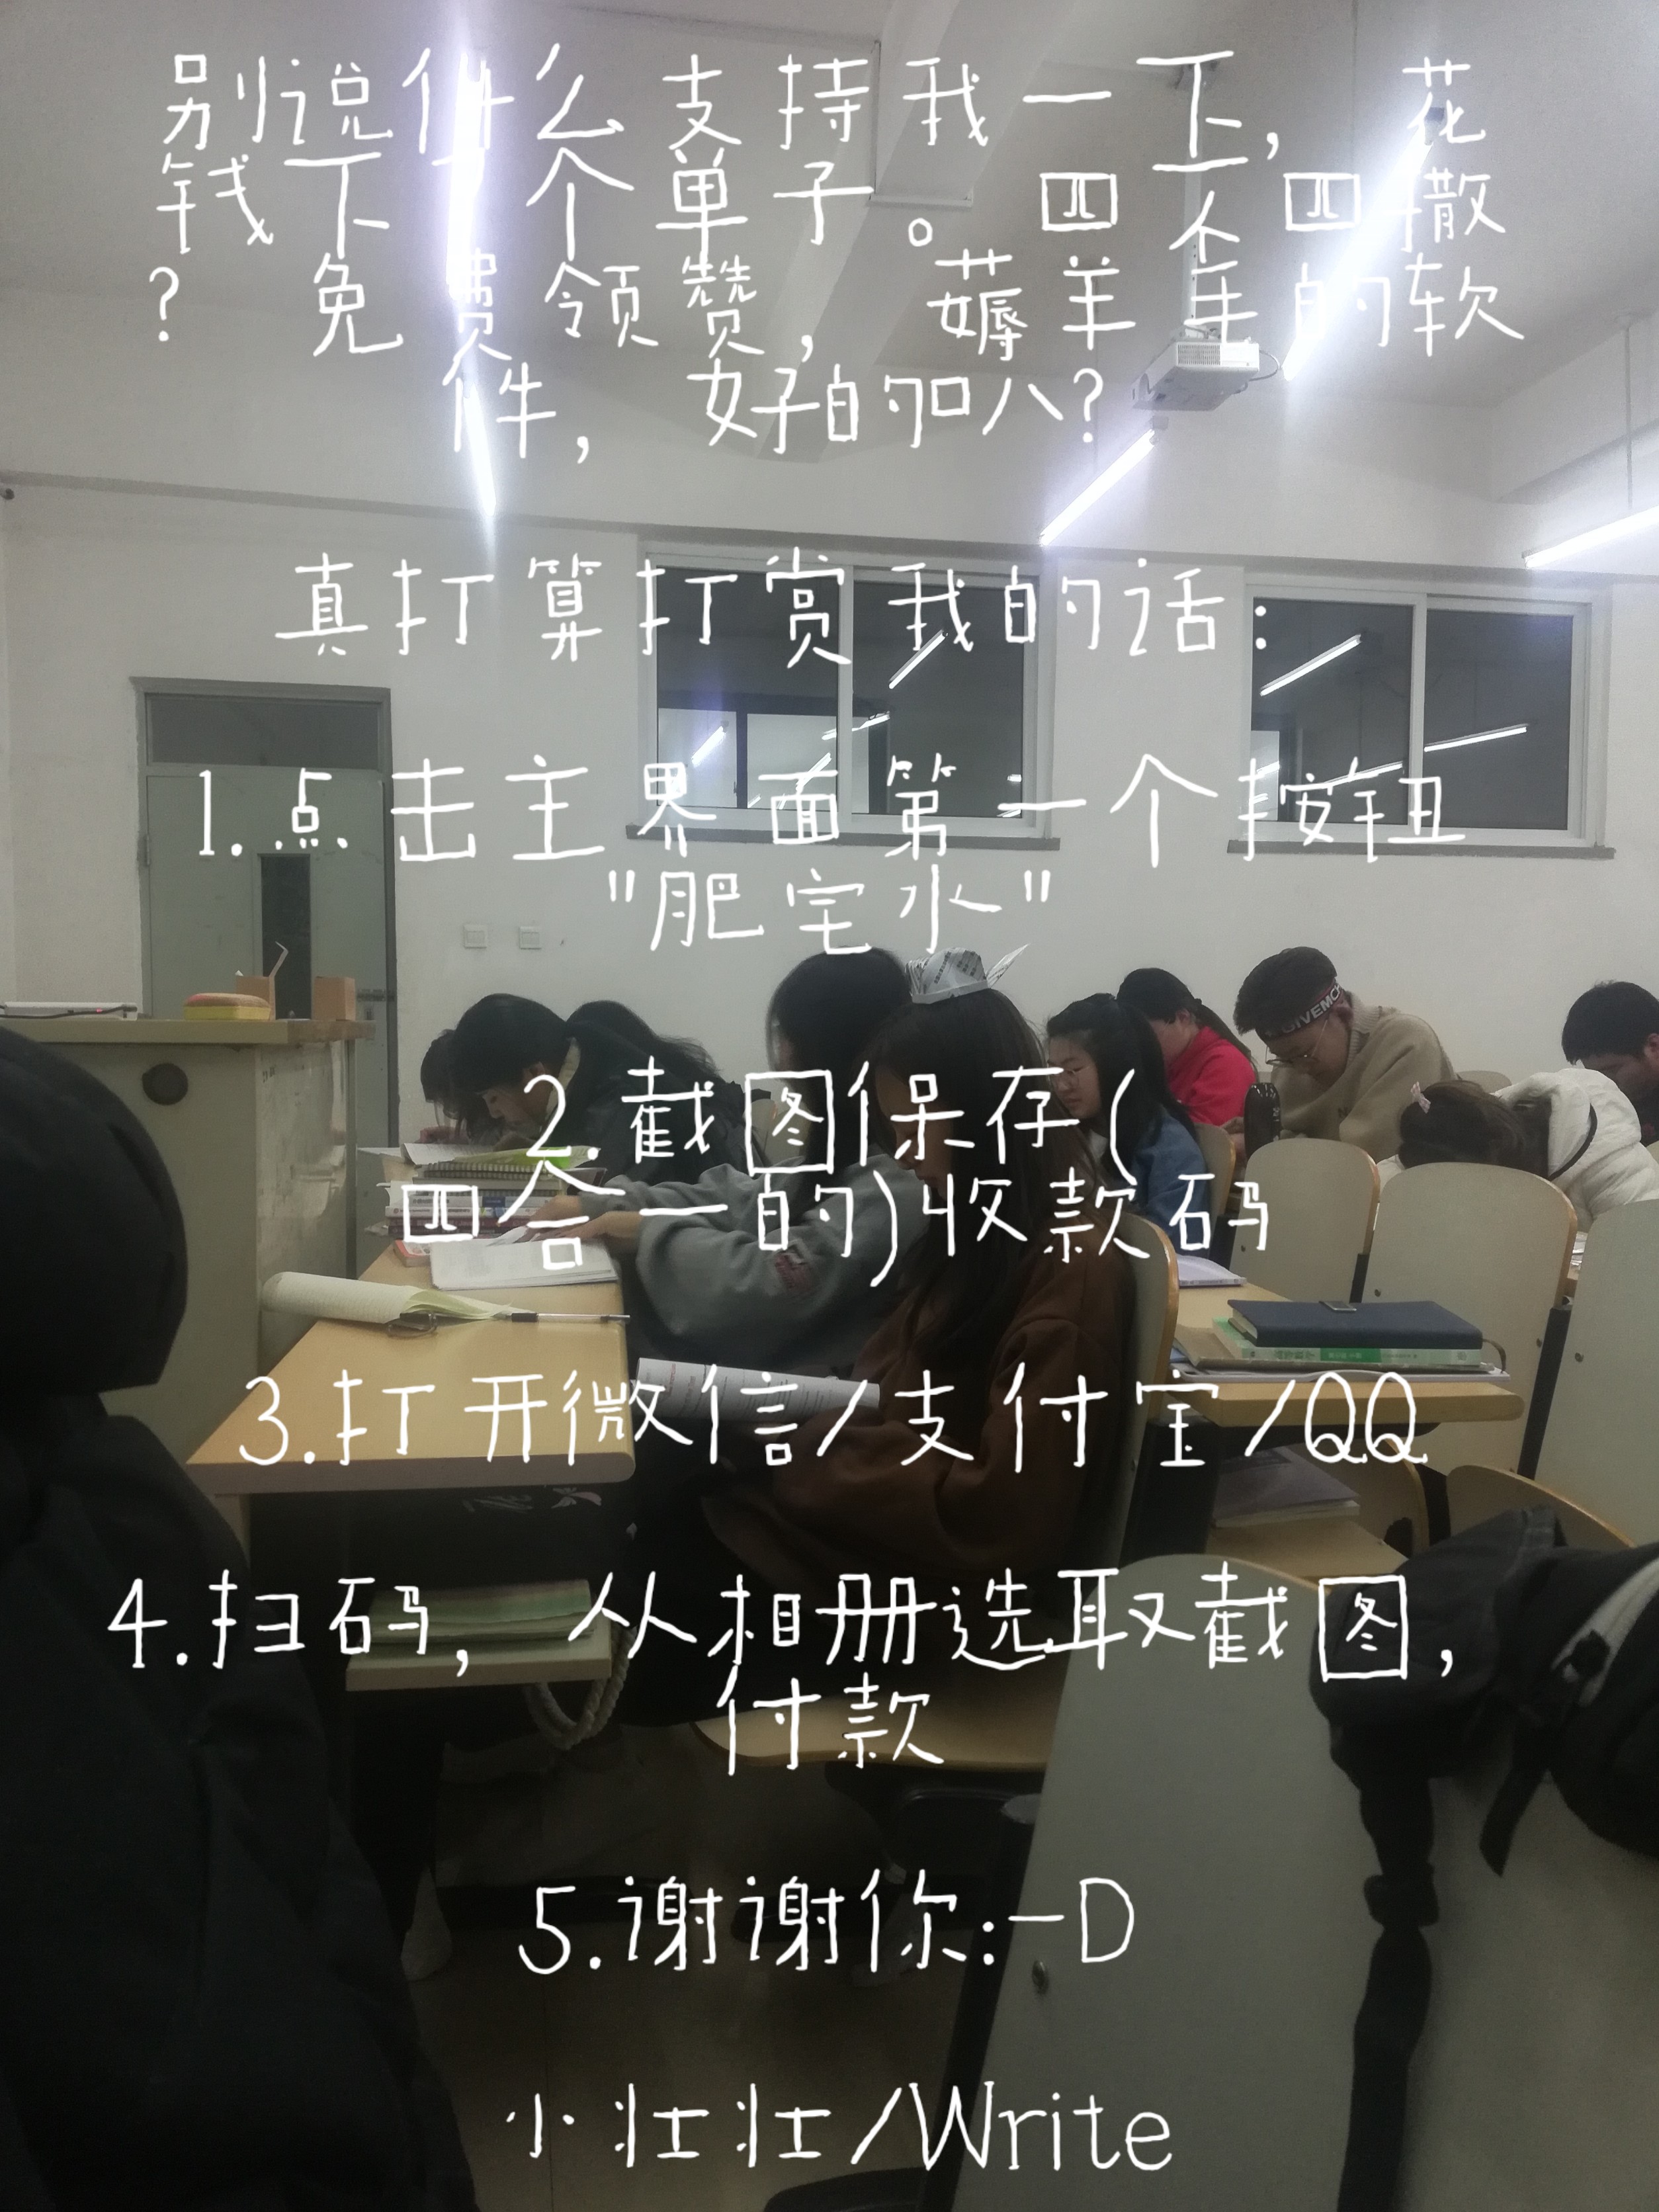 别说什么支持我一下， 花
钱下个单子。 四不四撒
? 免费领赞， 薅羊毛的软
件， 好的叭?
真打算打赏我的话:
1.点击主界面第一个按钮
"肥宅水"
2.截图保存(
四合一的)收款码
3.打开微信/支付宝/QQ
4.扫码， 从相册选取截图，
付款
5.谢谢你:-D
小壮壮/Write